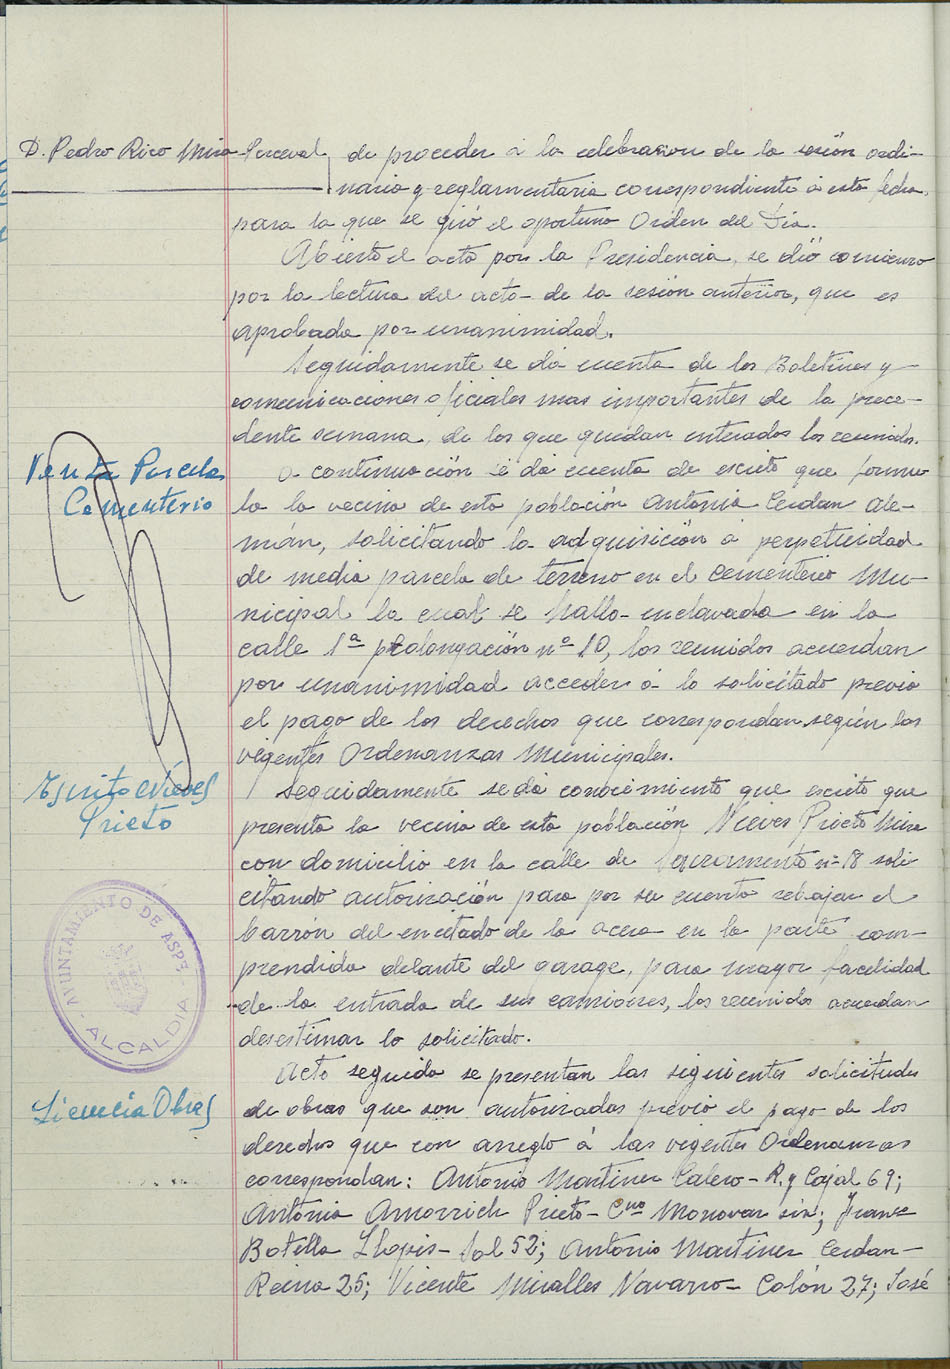 D. Pedro Rico Mira-Perceval de proceder a la celebracion de la sesión ordi-
naria y reglamentaria correspondiente a esta fecha,
para la que se giró el oportuno Orden del Día.
Abierto el acto por la Presidencia, se dió comienzo
por la lectura del acta de la sesión anterior, que es
aprobada por unanimidad.
Seguidamente se dá cuenta de los Boletines y
comunicaciones oficiales mas importantes de la prece-
dente semana, de los que quedan enterados los reunidos.
Venta Parcela
Cementerio
A continuación se dá cuenta de escrito que formu
la la vecina de esta población Antonia Cerdan Ale-
mán, solicitando la adquisición a perpetuidad
de media parcela de terreno en el Cementerio Mu-
nicipal la cual se halla enclavada en la
calle 1ª prolongación nº 10, los reunidos acuerdan
por unanimidad acceder a lo solicitado previo
el pago de los derechos que correspondan según las
vegentes Ordenanzas Municipales.
Escrito Nieves
Prieto
Seguidamente se dá conocimiento que escrito que
presenta la vecina de esta población Nieves Prieto Mira
con domicilio en la calle de Sacramento nº 18 soli
citando autorización para por su cuenta rebajar el
barrón del encitado de la acera en la parte com-
prendida delante del garage, para mayor facilidad
de la entrada de sus camiones, los reunidos acuerdan
desestimar lo solicitado.
AYUNTAMIENTO DE ASPE
ALCALDIA
Licencia Obras
Acto seguido se presentan las siguientes solicitudes
de obras que son autorizadas previo el pago de los
derechos que con arreglo á las vegentes Ordenanzas
correspondan: Antonio Martinez Calero - R. y Cajal 69;
Antonia Amorrich Prieto - Cno Monovar s/n; Franco
Botella Llopis - Sol 52; Antonio Martinez Cerdan -
Reina 25; Vicente Miralles Navarro - Colón 27; José